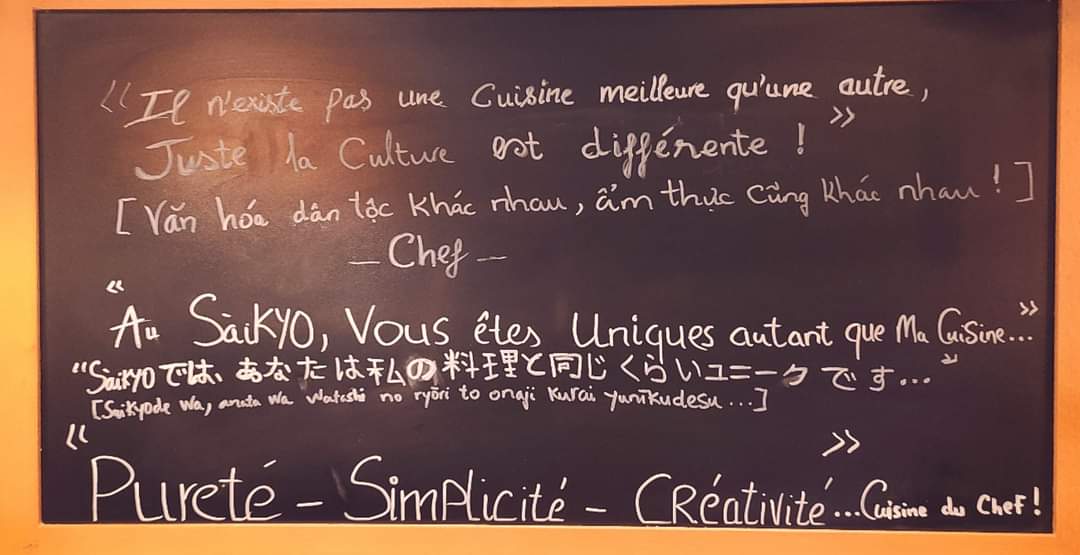 « Il n'existe pas une Cuisine meilleure qu'une autre,
Juste la Culture est différente ! »
[Văn hóa dân tộc khác nhau, ẩm thực Cũng khác nhau ! ]
— Chef —
« Au SàiKYO, Vous êtes Uniques autant que Ma Cuisine... »
"SàiKYOでは、あなたは私の料理と同じくらいユニークです..."
[Saikyode wa, anata wa watashi no ryōri to onaji kurai yunikudesu...]
« Pureté - SimPlicité - CRéativité »...Cuisine du Chef !